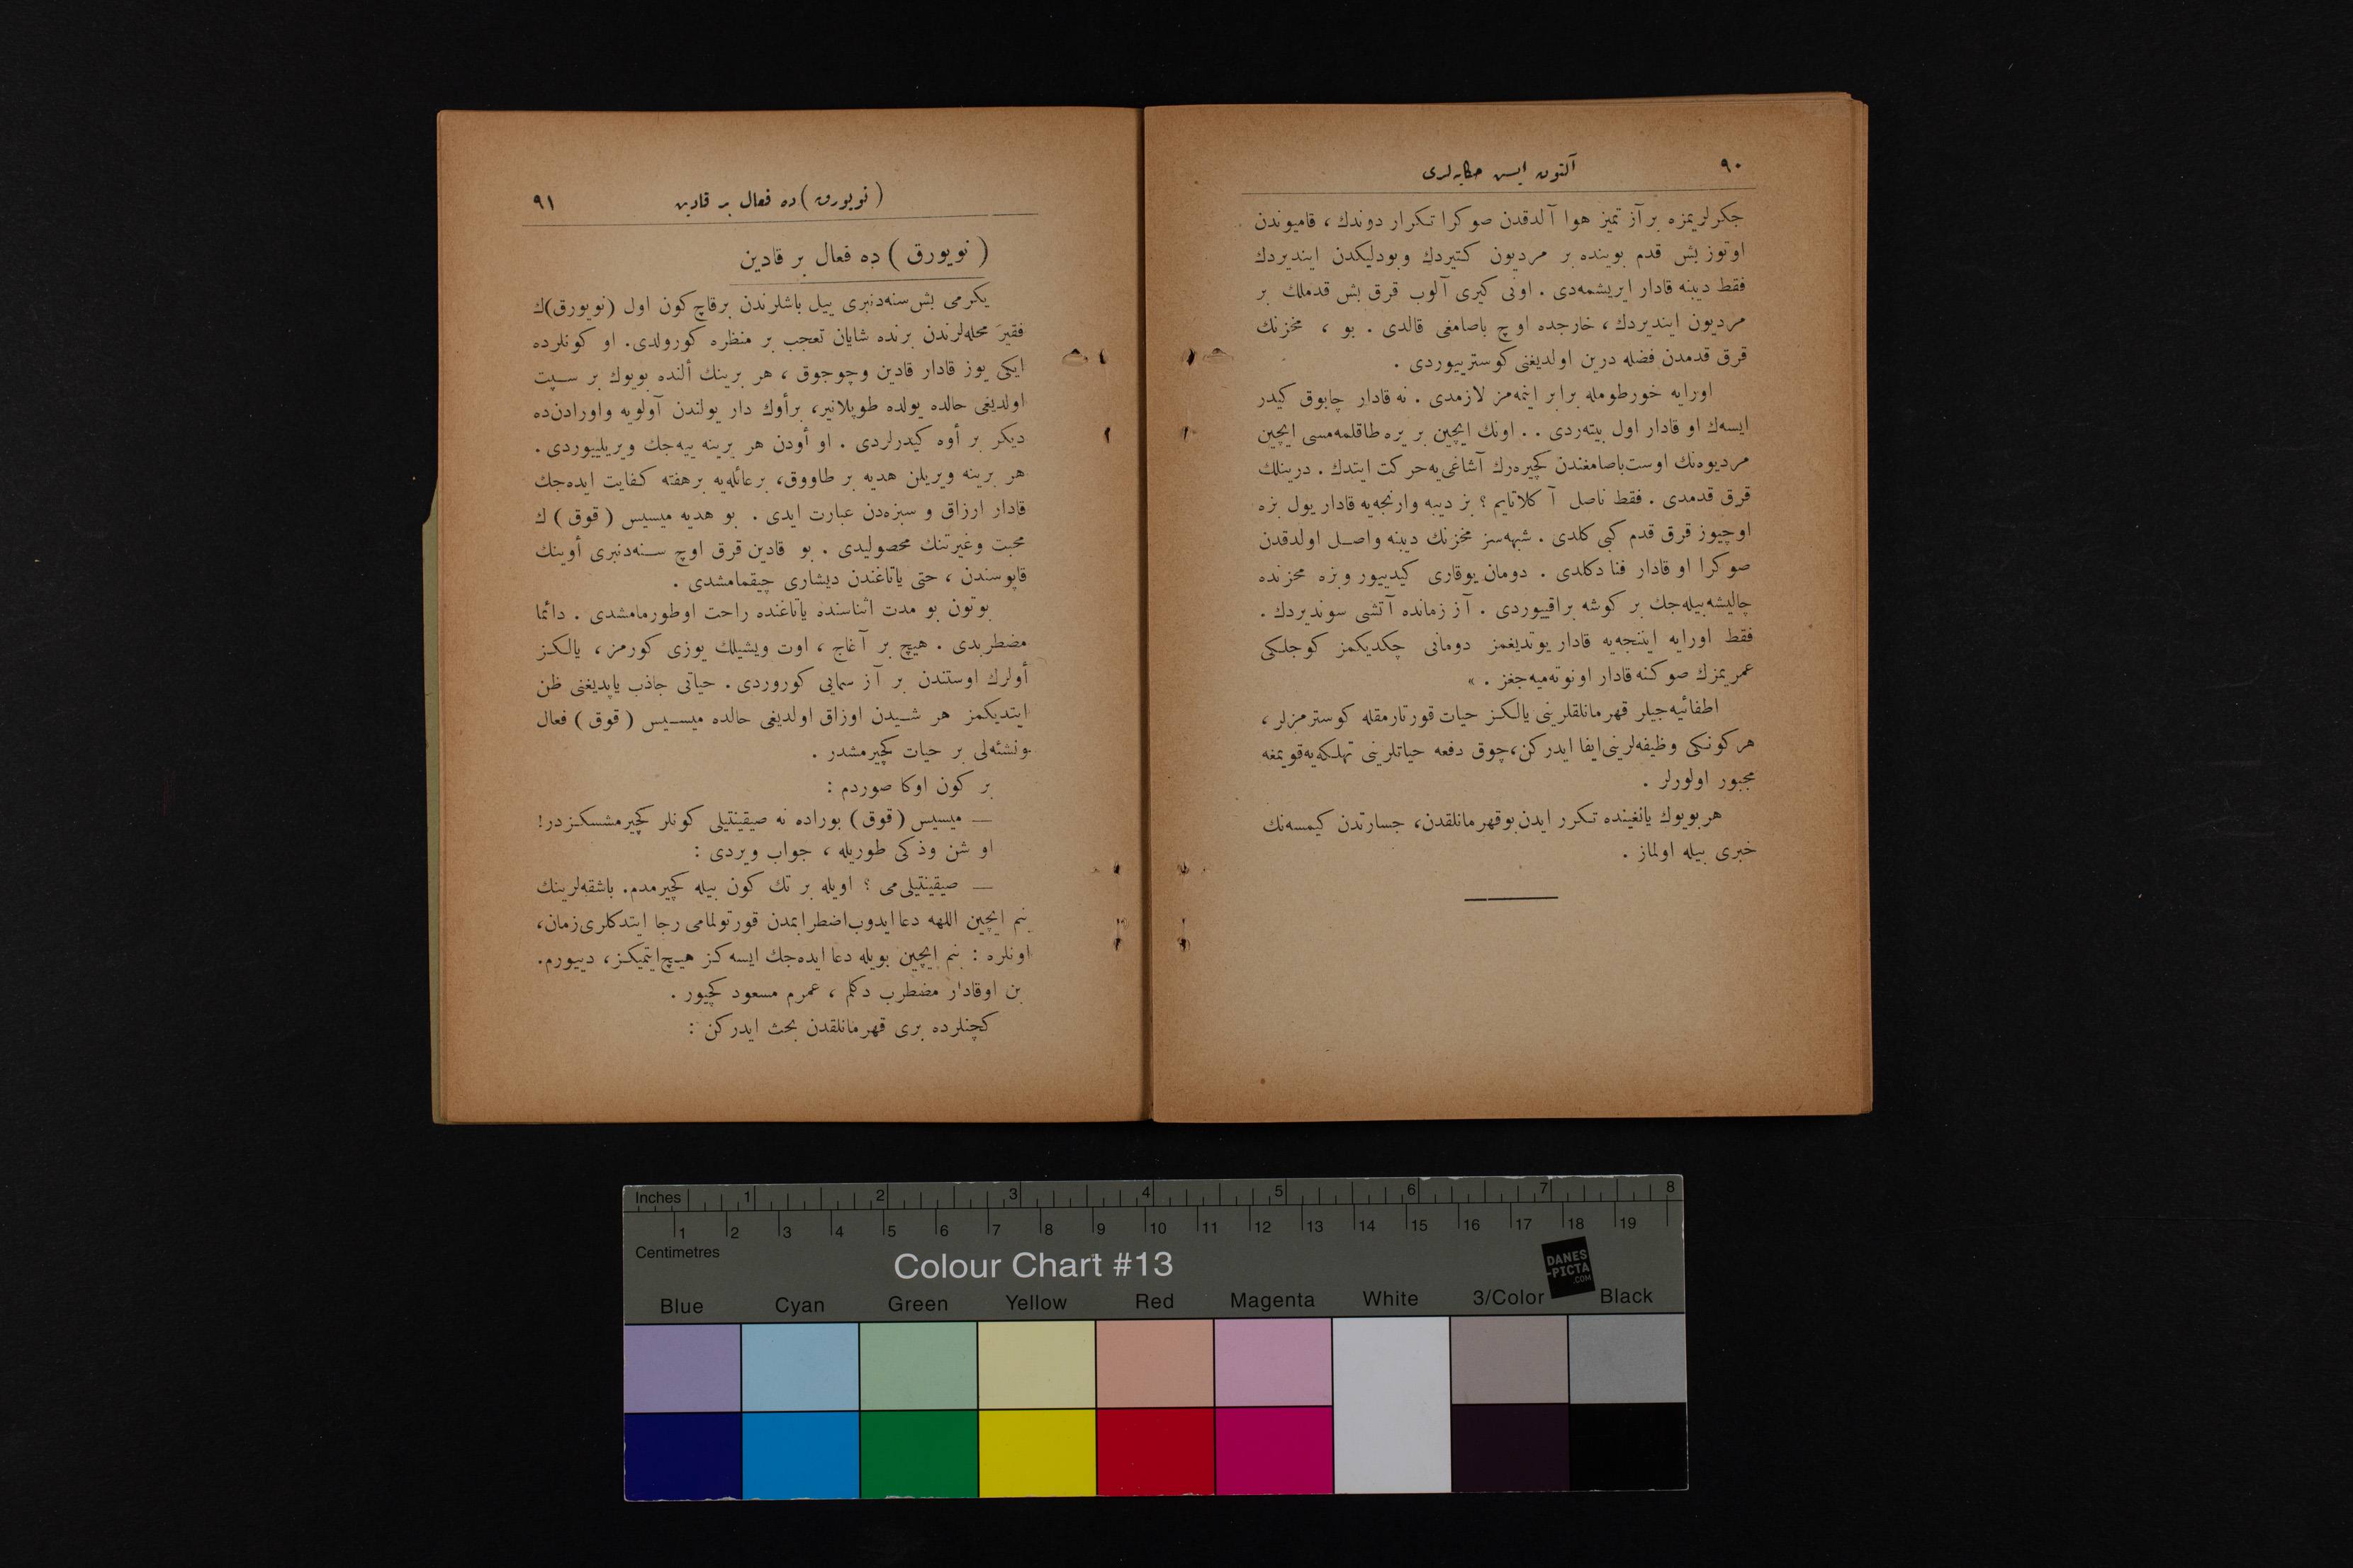 ٩٠
آلتون ایسن حکایه‌لری
جکرلریمزه برآز تمیز هوا آلدقدن صوکرا تکرار دوندك ، قامیوندن
اوتوز بش قدم بوینده بر مردیون کتیردك وبودلیکدن ایندیردك
فقط دیبنه قادار ایریشمه‌دی . اونی کیری آلوب قرق بش قدملك بر
مردیون ایندیردك ، خارجده اوچ باصامغی قالدی . بو ، مخزنك
قرق قدمدن فضله درین اولدیغنی کوسترییوردی .
اورایه خورطومله برابر اینمه‌مز لازمدی . نه قادار چابوق کیدر
ایسه‌ك او قادار اول بیته‌ردی . . اونك ایچین بر یره طاقلمه‌مسی ایچین
مردیوه‌نك اوست باصامغندن کچیره‌رك آشاغی‌یه حرکت ایتدك . درینلك
قرق قدمدی . فقط ناصل آکلاتایم ؟ بز دیبه وارنجه‌یه قادار یول بزه
اوچیوز قرق قدم کبی کلدی . شبهه‌سز مخزنك دیبنه واصل اولدقدن
صوکرا او قادار فنا دکلدی . دومان یوقاری کیدییور وبزه مخزنده
چالیشه‌بیله‌جك بر کوشه براقییوردی . آز زمانده آتشی سوندیردك .
فقط اورایه ایننجه‌یه قادار یوتدیغمز دومانی چکدیکمز کوجلکی
عمریمزك صوکنه قادار اونوته‌میه‌جغز . »
اطفائیه‌جیلر قهرمانلقلرینی یالکز حیات قورتارمقله کوسترمزلر ،
هرکونکی وظیفه‌لرینی ایفا ایدرکن، چوق دفعه حیاتلرینی تهلکه‌یه قویمغه
مجبور اولورلر .
هر بویوك یانغینده تکرر ایدن بوقهرمانلقدن، جسارتدن کیمسه‌نك
خبری بیله اولماز .
(نویورق) ده فعال بر قادین
٩١
(نویورق) ده فعال بر قادین
یکرمی بش سنه‌دنبری ییل باشلرندن برقاچ کون اول (نویورق)ك
فقیر محله‌لرندن برنده شایان تعجب بر منظره کورولدی. او کونلرده
ایکی یوز قادار قادین وچوجوق ، هر برینك ألنده بویوك بر سپت
اولدیغی حالده یولده طوپلانیر، برأوك دار یولندن آولویه واورادن‌ده
دیکر بر أوه کیدرلردی . او أودن هر برینه ییه‌جك ویریلییوردی .
هر برینه ویریلن هدیه بر طاووق، برعائله‌یه برهفته کفایت ایده‌جك
قادار ارزاق و سبزه‌دن عبارت ایدی . بو هدیه میسیس (قوق) ك
محبت وغیرتنك محصولیدی . بو قادین قرق اوچ سنه‌دنبری أوینك
قاپوسندن ، حتی یاتاغندن دیشاری چیقمامشدی .
بوتون بو مدت اثناسنده یاتاغنده راحت اوطورمامشدی . دائما
مضطربدی . هیچ بر آغاج ، اوت ویشیللك یوزی کورمز ، یالکز
أولرك اوستندن بر آز سمایی کوروردی . حیاتی جاذب یاپدیغنی ظن
ایتدیکمز هر شیدن اوزاق اولدیغی حالده میسیس (قوق) فعال
ونشئه‌لی بر حیات کچیرمشدر .
بر کون اوکا صوردم :
— میسیس (قوق) بوراده نه صیقینتیلی کونلر کچیرمشسکزدر!
او شن وذکی طوریله ، جواب ویردی :
— صیقینتیلی‌می ؟ اویله بر تك کون بیله کچیرمدم. باشقه‌لرینك
بنم ایچین اللهه دعا ایدوب اضطرابمدن قورتولمامی رجا ایتدکلری زمان،
اونلره : بنم ایچین بویله دعا ایده‌جك ایسه‌کز هیچ ایتمیکز، دییورم.
بن اوقادار مضطرب دکلم ، عمرم مسعود کچیور .
کچنلرده بری قهرمانلقدن بحث ایدرکن :
Inches 1 2 3 4 5 6 7 8
1 2 3 4 5 6 7 8 9 10 11 12 13 14 15 16 17 18 19
Centimetres
Colour Chart #13
DANES
-PICTA
.COM
Blue Cyan Green Yellow Red Magenta White 3/Color Black